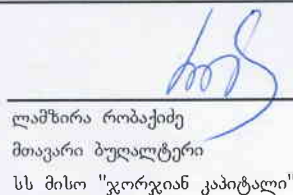 ლამზირა რობაქიძე
მთავარი ბუღალტერი
სს მისო "ჯორჯიან კაპიტალი"